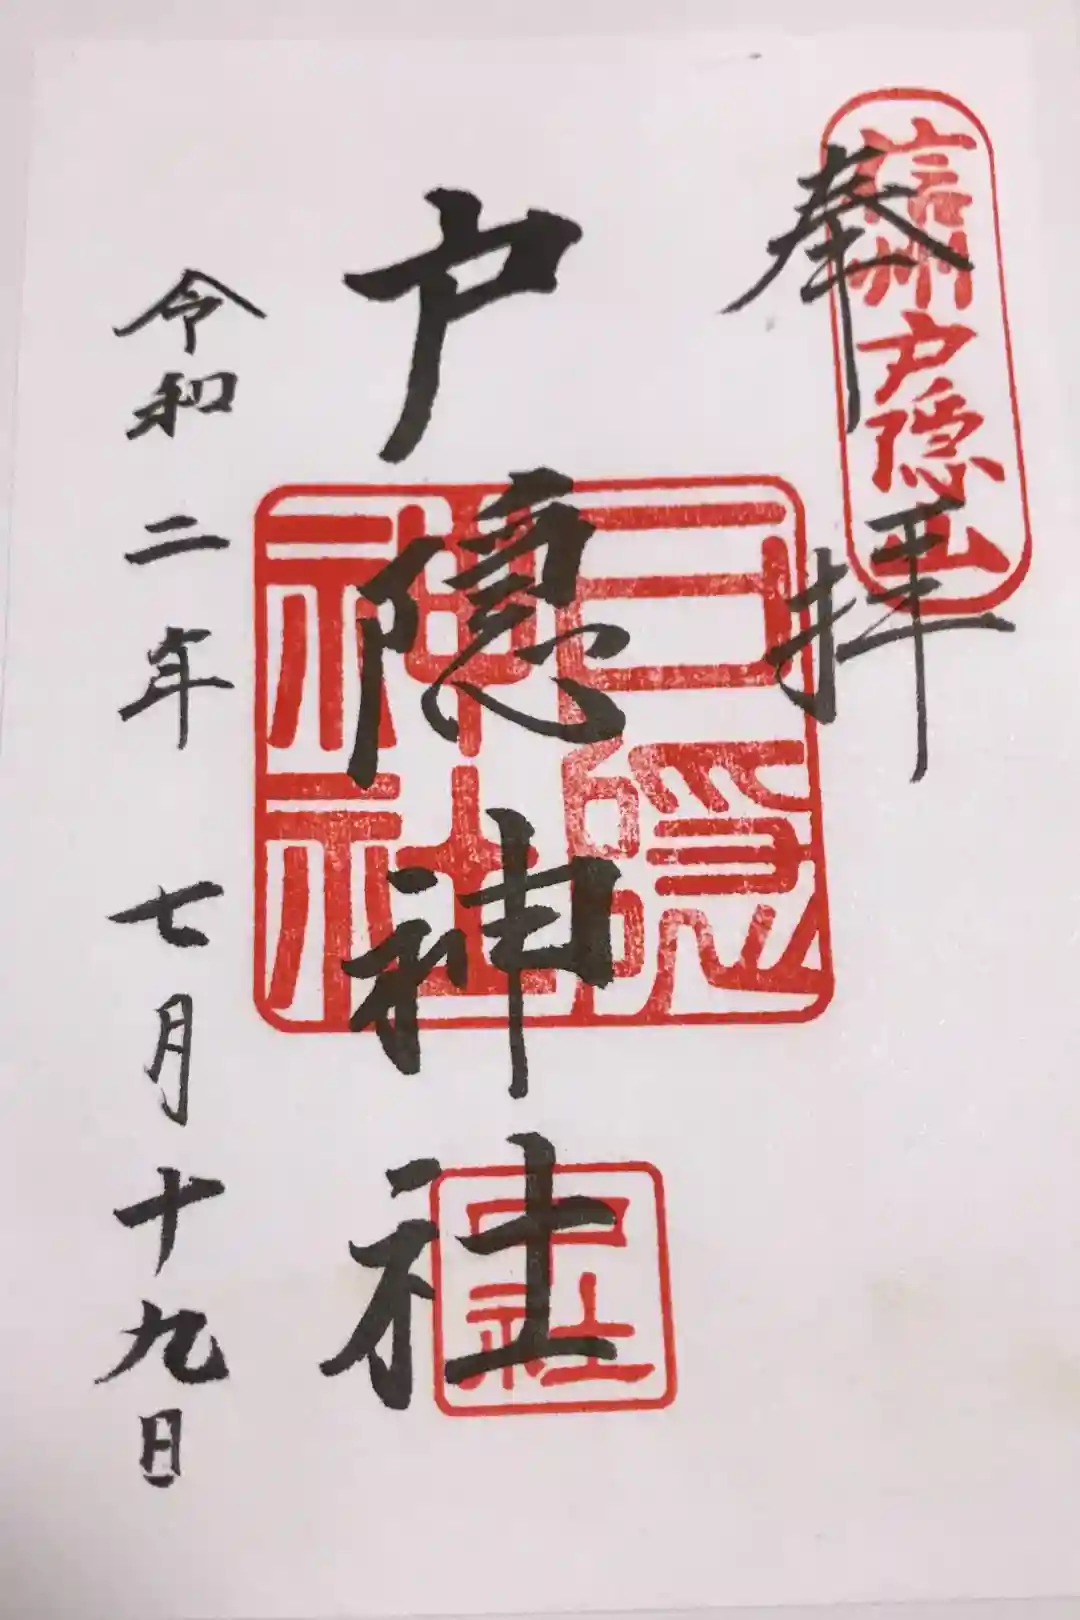 信州戸隠山
奉拝
戸隠神社
戸隠神社
中社
令和二年 七月十九日